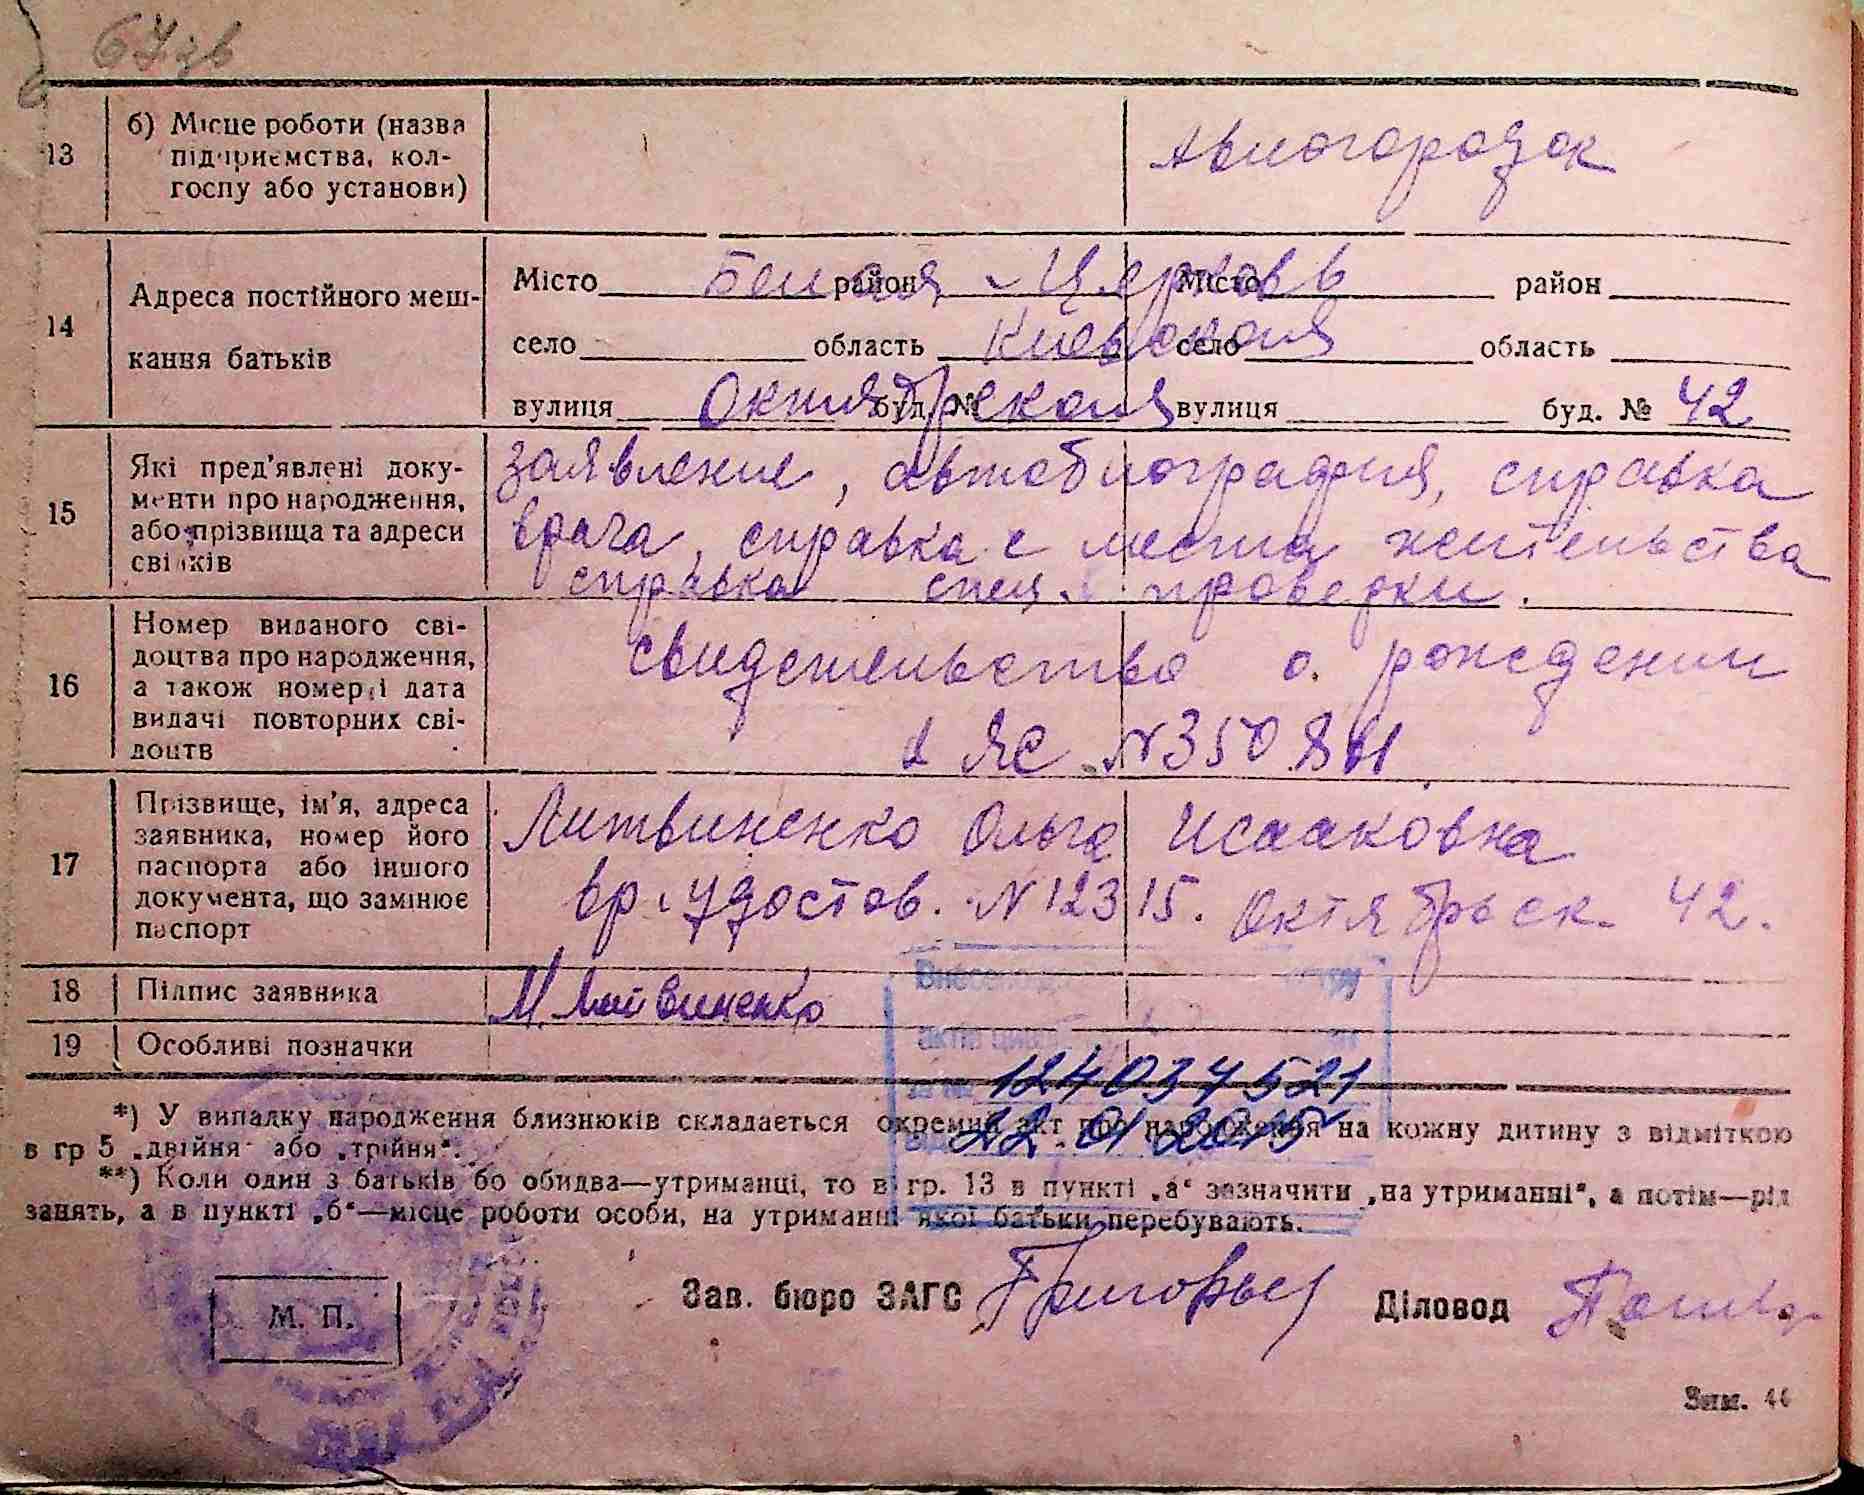 13
б) Місце роботи (назва
підприємства, кол-
госпу або установи)
Авиогородок
14
Адреса постійного меш-
кання батьків
Місто Белая район - Церковь Місто район
село область Киевская село область
вулиця Октябрская буд. № вулиця буд. № 42
15
Які пред'явлені доку-
менти про народження,
або прізвища та адреси
свідків
заявление, автобиография, справка
врача, справка с места жительства
справка спец. проверки.
16
Номер виданого сві-
доцтва про народження,
а також номер і дата
видачі повторних сві-
доцтв
свидетельство о. рождении
ЯС №350
17
Прізвище, ім'я, адреса
заявника, номер його
паспорта або іншого
документа, що замінює
паспорт
Литвиненко Ольга Исааковна
вр. удостов. N12315. Октябрьск. 42.
18
Підпис заявника
М. Литвиненко
19
Особливі позначки
Внесено
актів
за №
124037521
22.01 2015
*) У випадку народження близнюків складається окремий акт про народження на кожну дитину з відміткою
в гр 5 „двійня“ або „трійня“.
**) Коли один з батьків бо обидва—утриманці, то в гр. 13 в пункті „а“ зазначити „на утриманні“, а потім—рід
занять, а в пункті „б“—місце роботи особи, на утриманні якої батьки перебувають.
М. П.
Зав. бюро ЗАГС Григорьев Діловод
Зам. 44